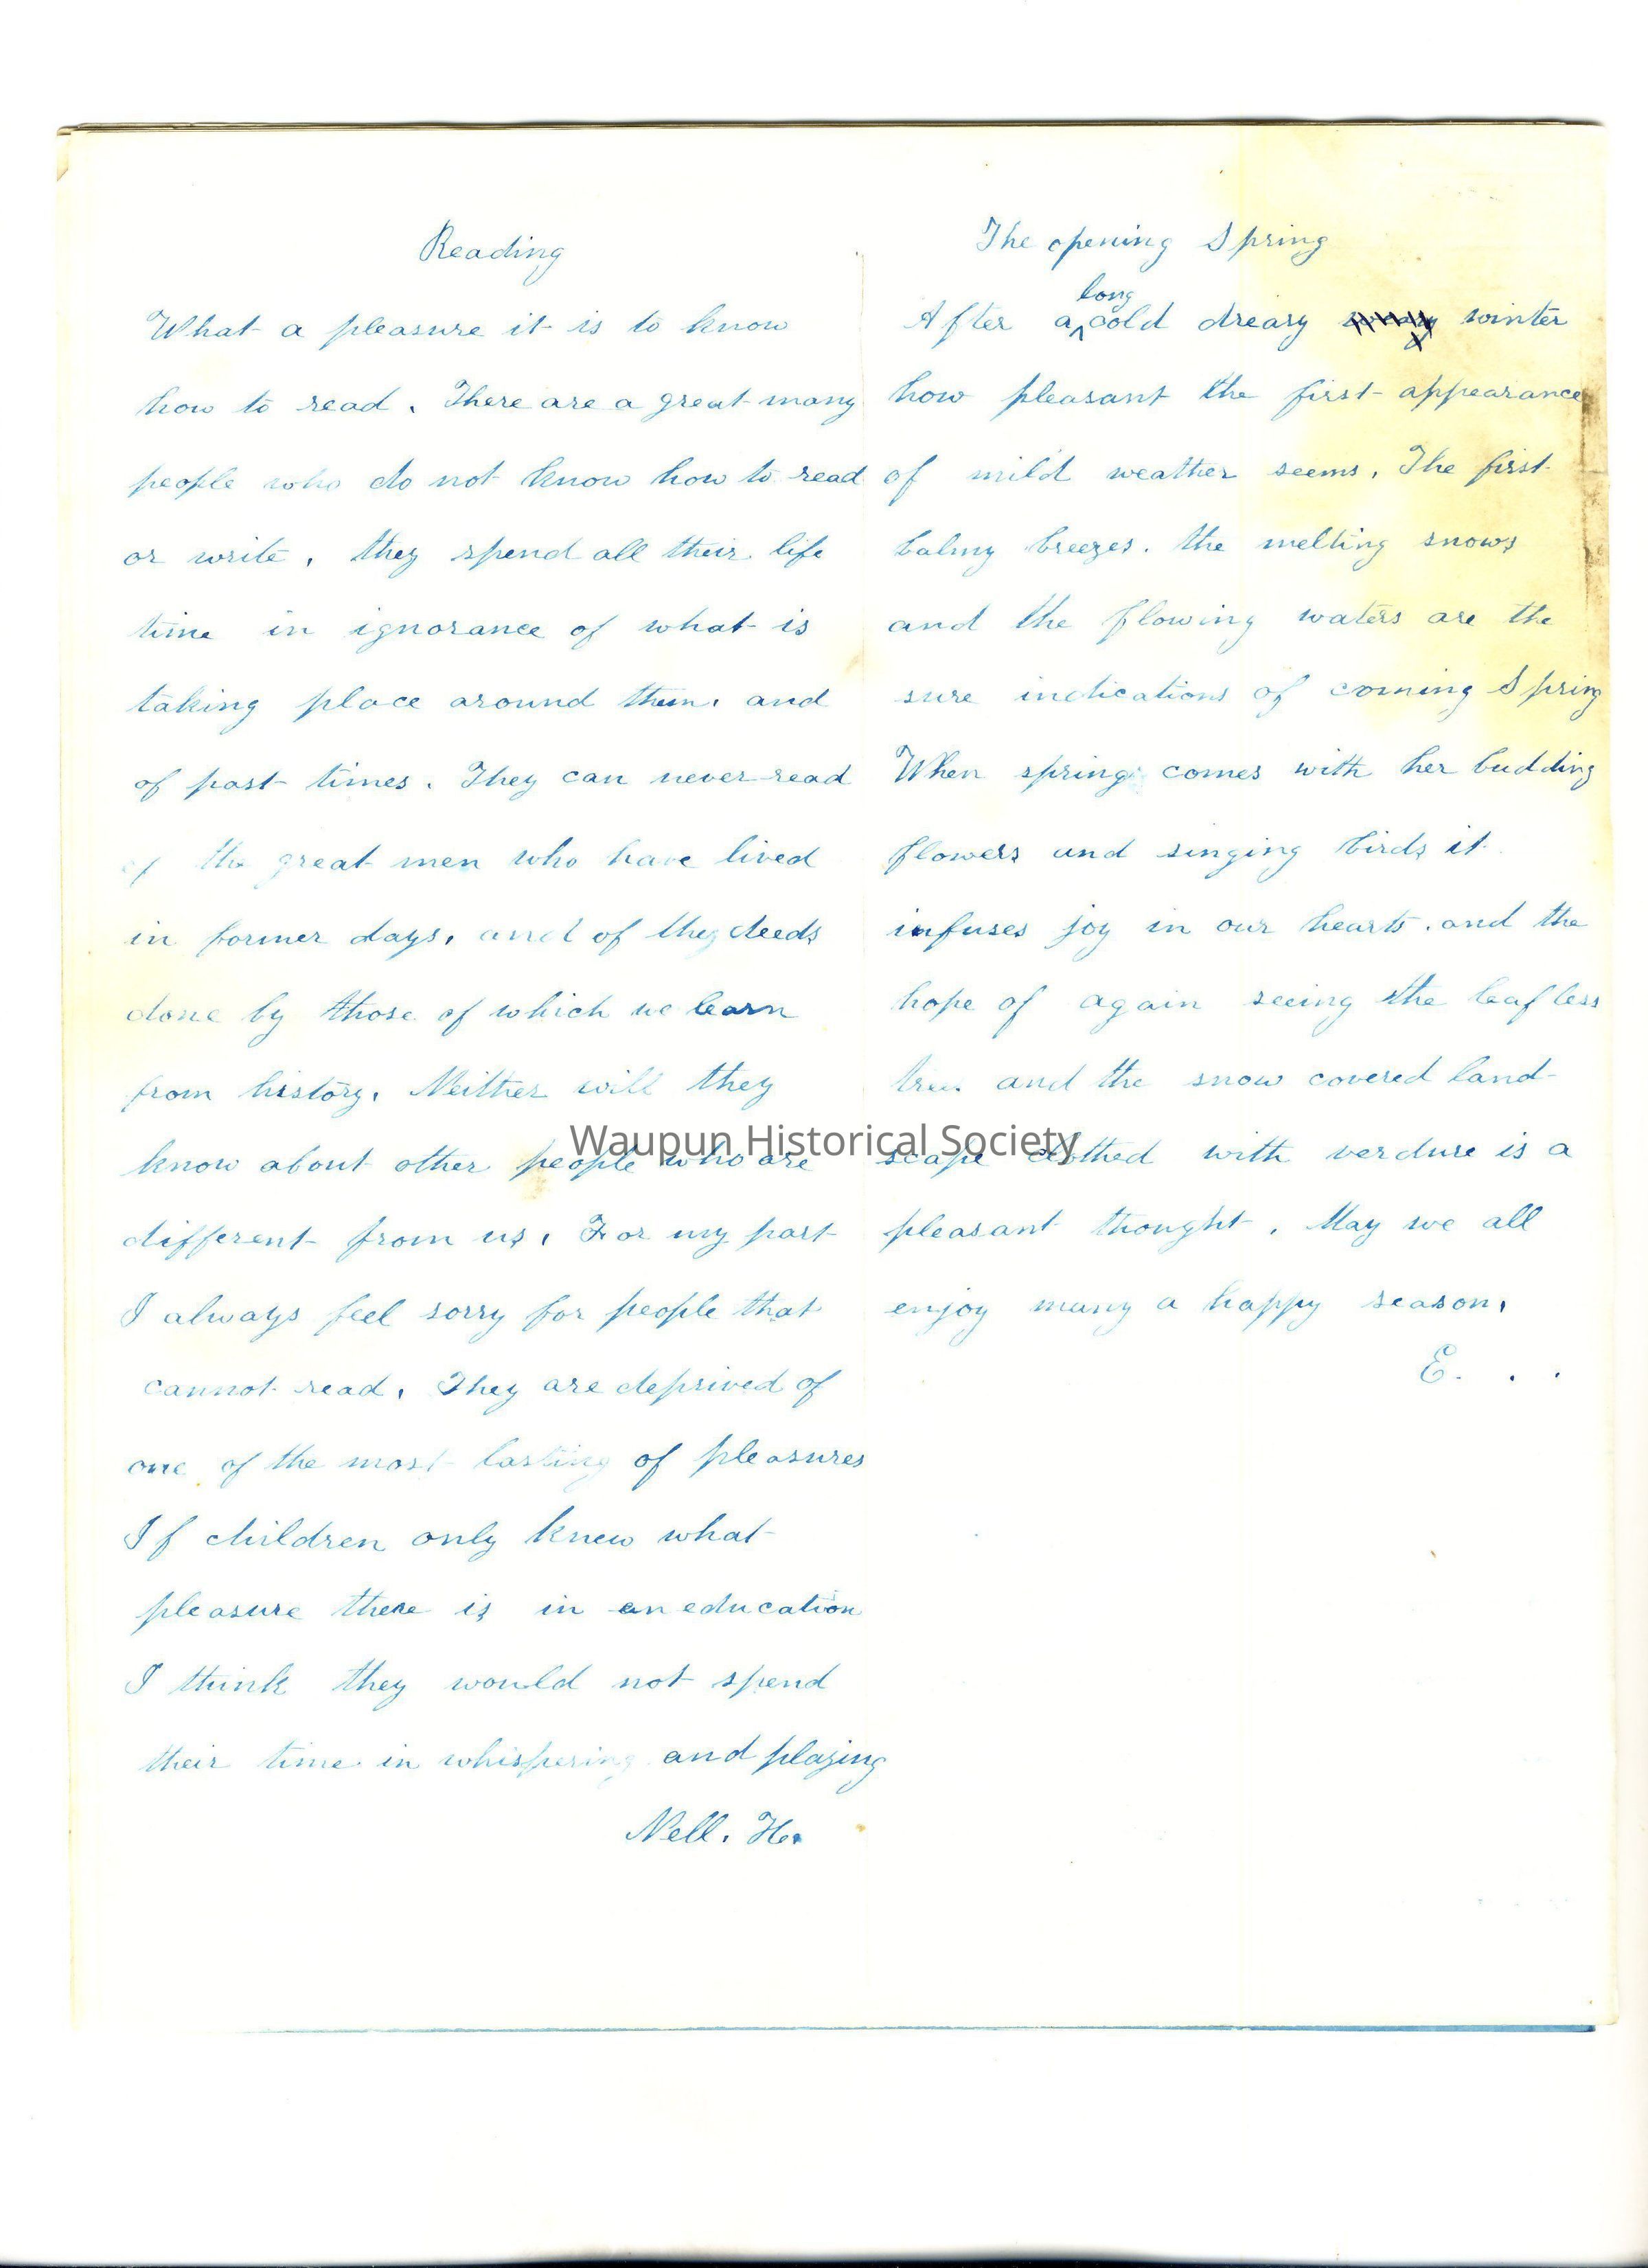 Reading
What a pleasure it is to know
how to read. There are a great many
people who do not know how to read
or write, they spend all their life
time in ignorance of what is
taking place around them, and
of past times. They can never read
of the great men who have lived
in former days, and of the deeds
done by those of which we learn
from history. Neither will they
know about other people who are
different from us. For my part
I always feel sorry for people that
cannot read. They are deprived of
one of the most lasting of pleasures
If children only knew what
pleasure there is in an education
I think they would not spend
their time in whispering and playing
Nell. H.
The opening Spring
After a long cold dreary winter
how pleasant the first appearance
of mild weather seems. The first
balmy breezes. the melting snows
and the flowing waters are the
sure indications of coming Spring
When spring comes with her budding
flowers and singing birds it
infuses joy in our hearts. and the
hope of again seeing the leafless
tree and the snow covered land-
scape clothed with verdure is a
pleasant thought. May we all
enjoy many a happy season.
E. . .
Waupun Historical Society